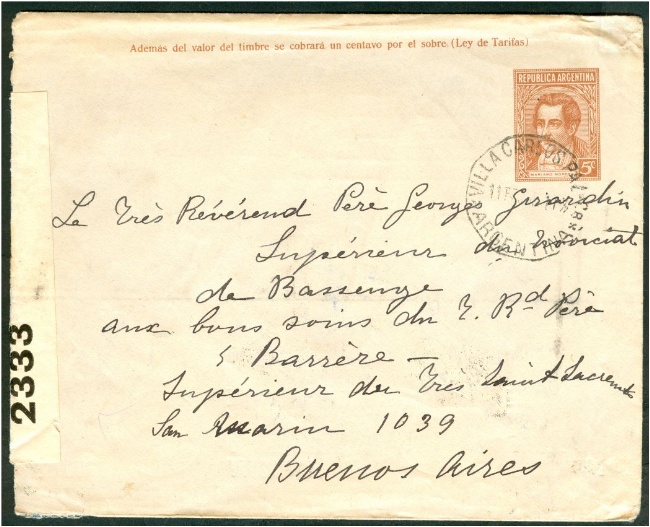 Además del valor del timbre se cobrará un centavo por el sobre. (Ley de Tarifas)
REPUBLICA ARGENTINA
5c
VILLA CARLOS
ARGENTINA
Le Très Révérend Père Georges Girardin
Supérieur du
de Bassenge
aux bons soins du T. Rd Père
Barrère —
Supérieur du Très Saint Sacrement
San Martin 1039
Buenos Aires
2333